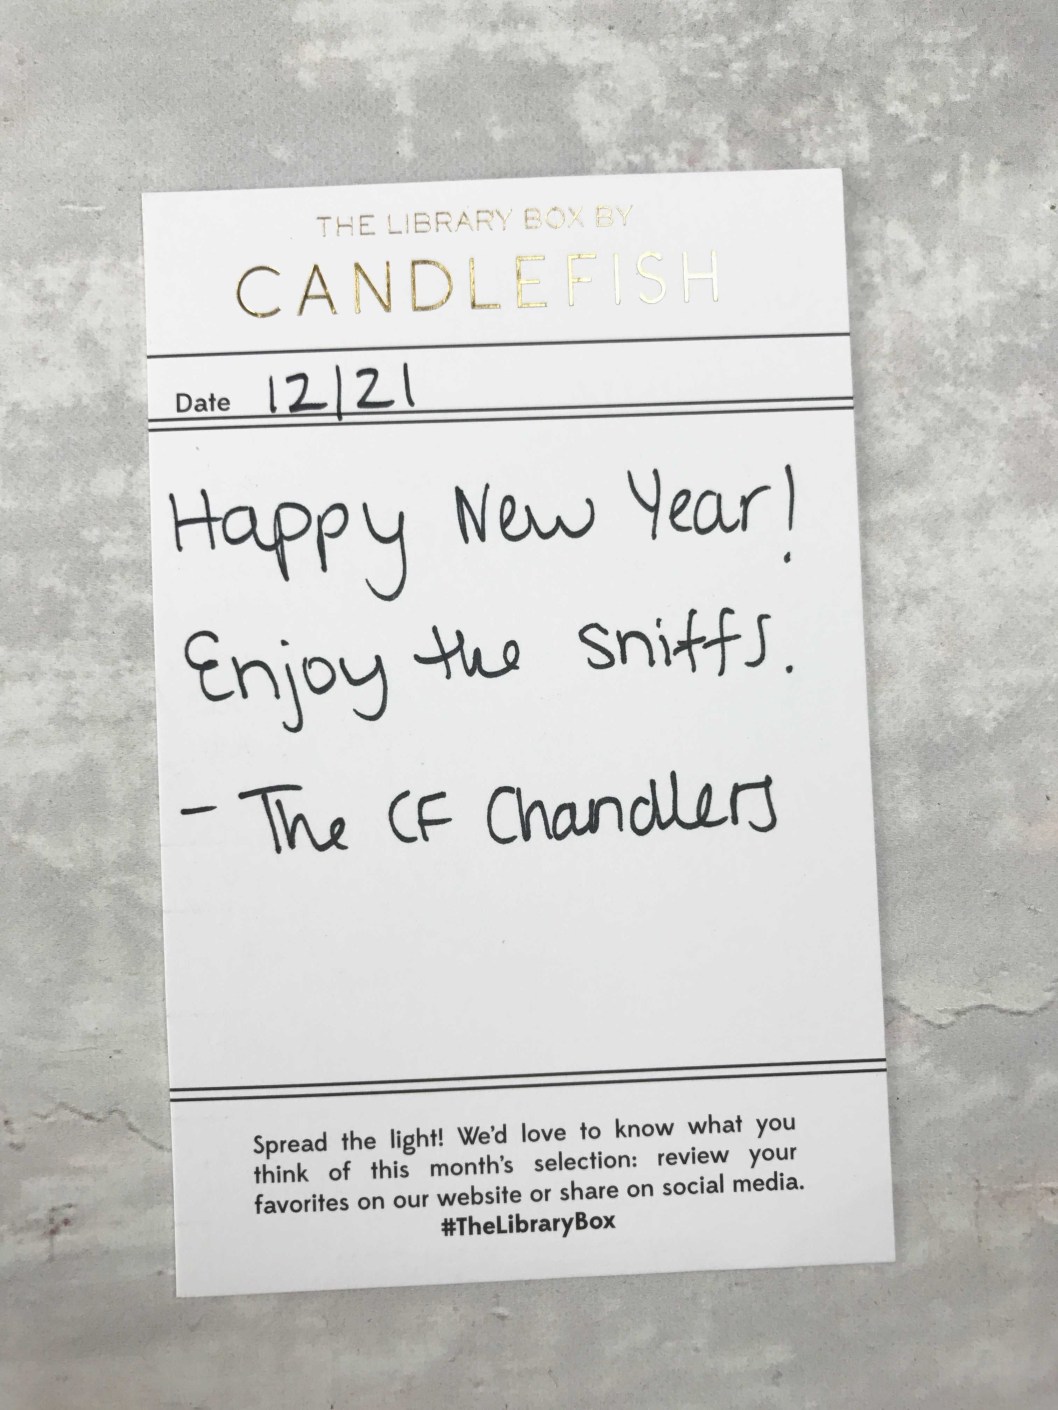 THE LIBRARY BOX BY
CANDLEFISH
Date 12/21
Happy New Year!
Enjoy the sniffs.
- The CF Chandlers
Spread the light! We'd love to know what you
think of this month's selection: review your
favorites on our website or share on social media.
#TheLibraryBox